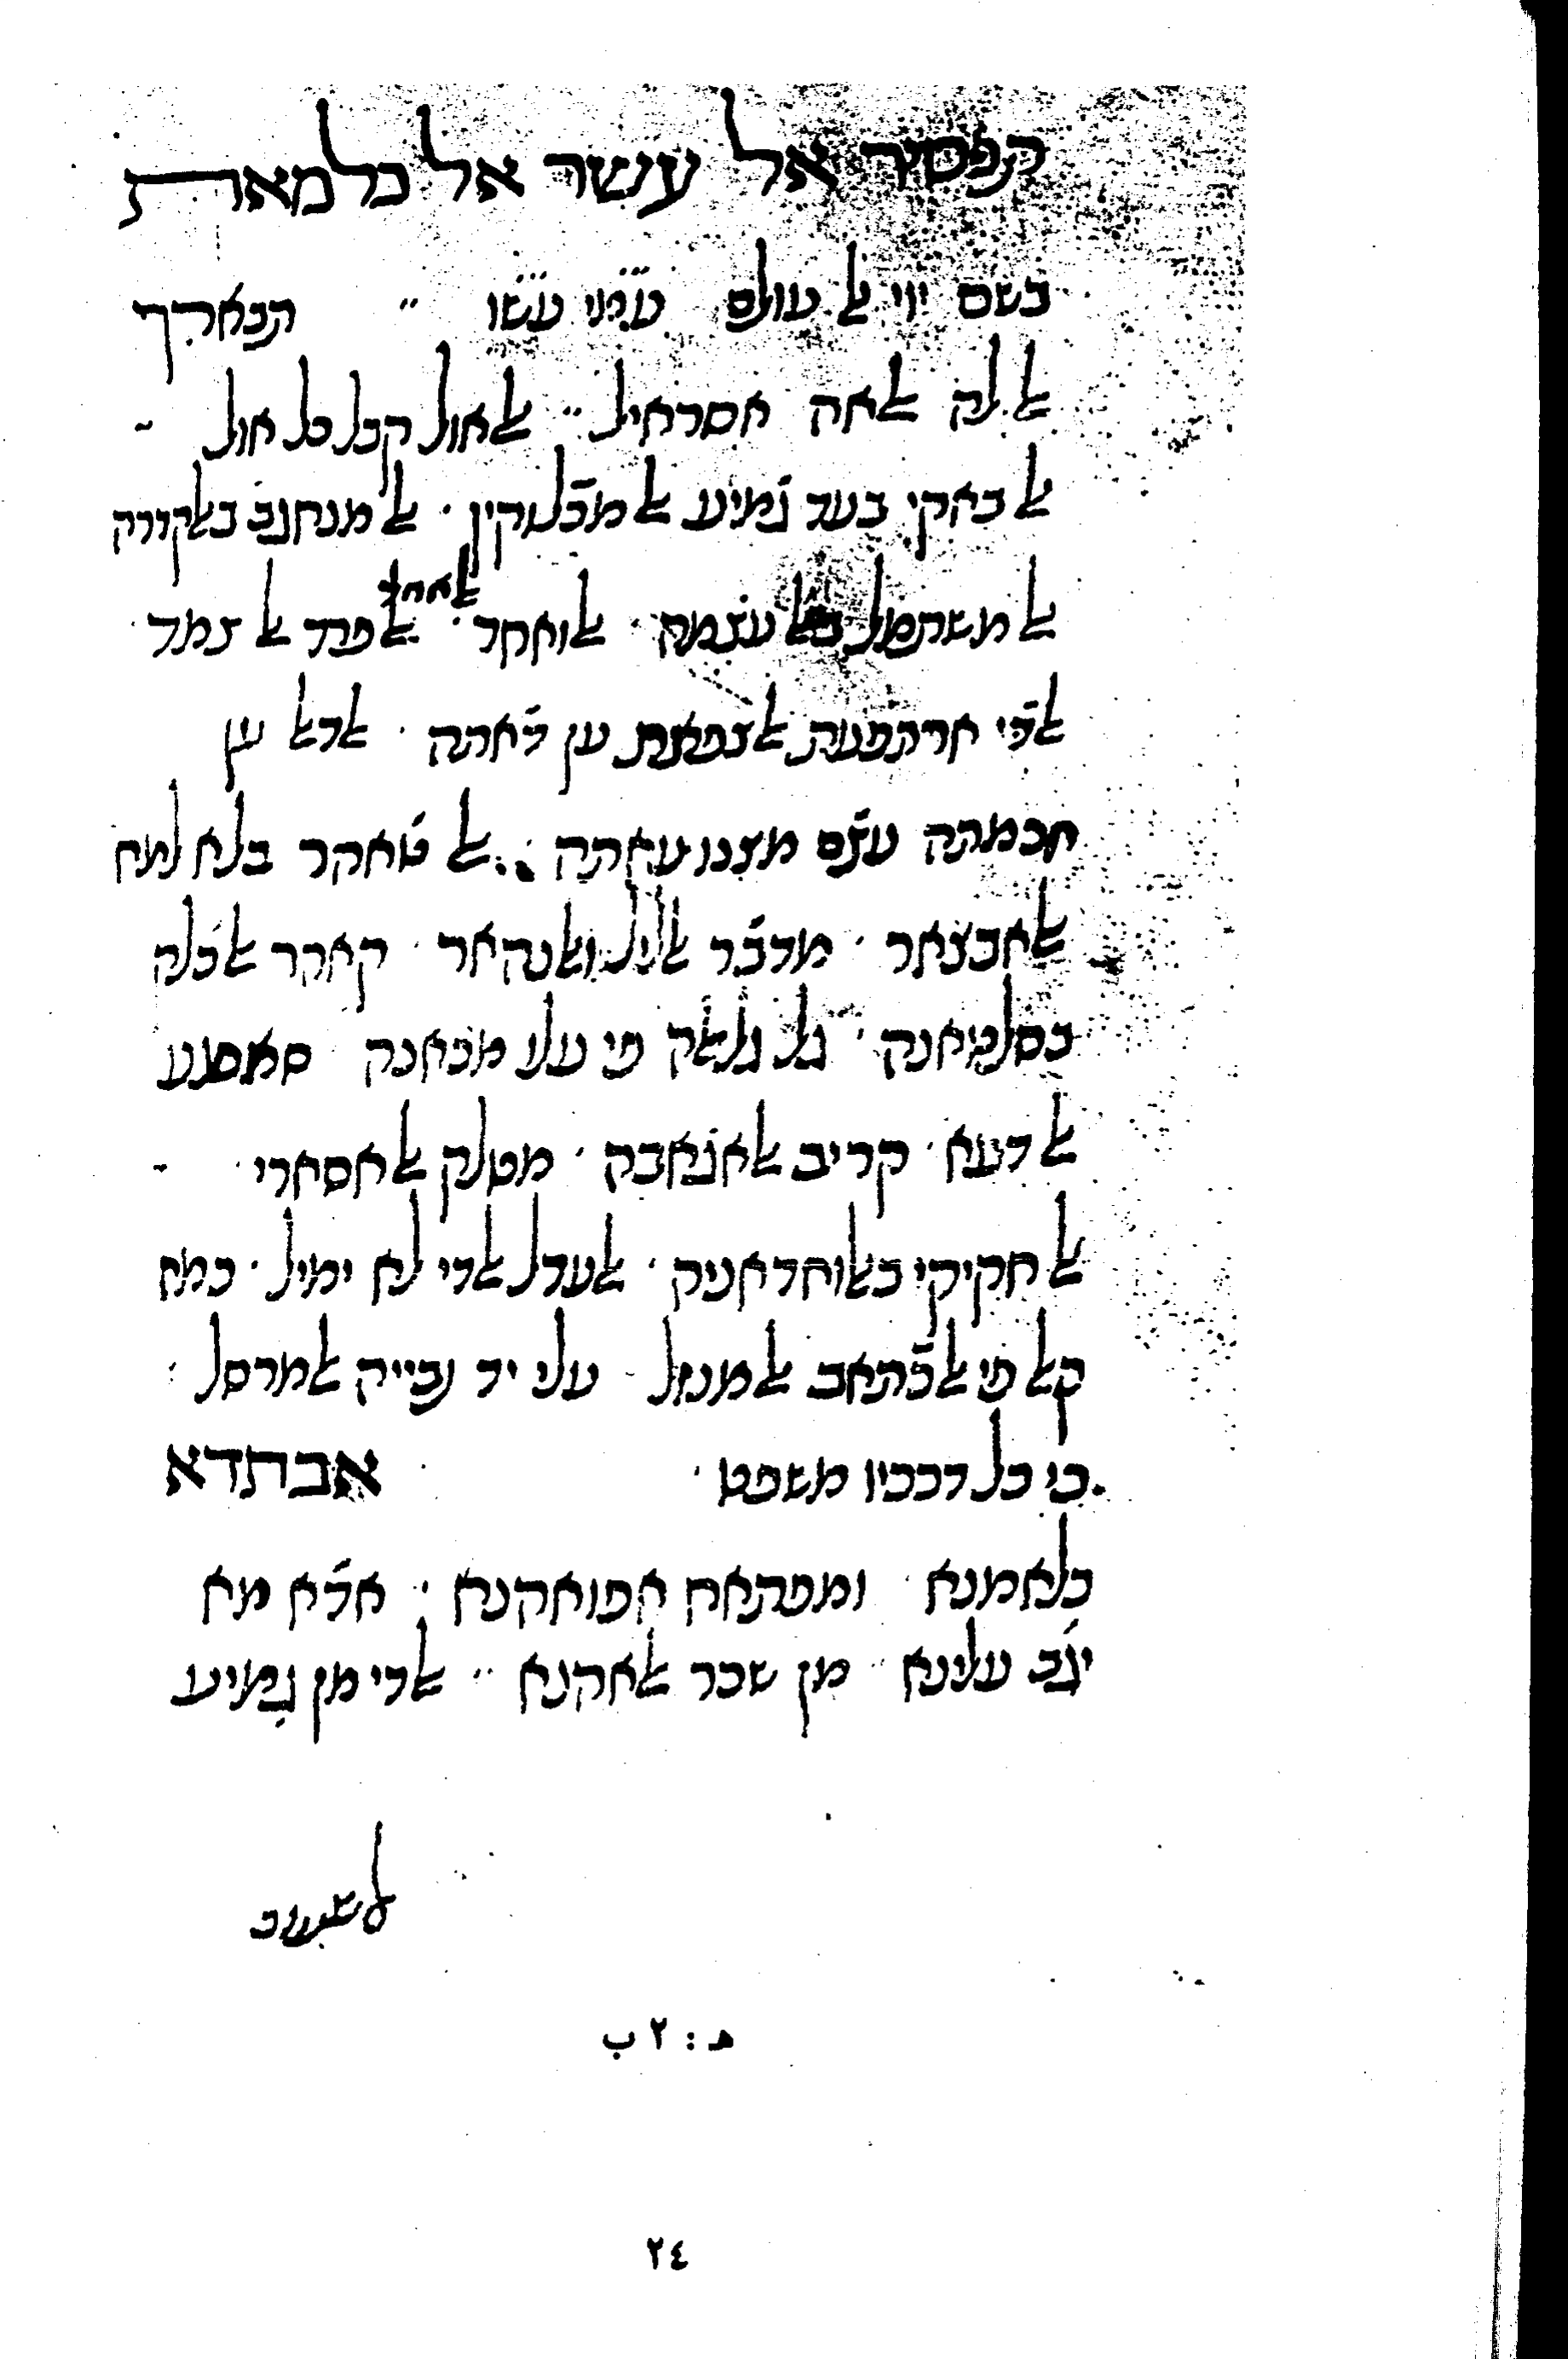 תפסיר אל עשר אל כלמאת
בשם ייי אל עולם עמי עשו ״ תבארך
אללה אלאה אסראיל ״ אלאול קבל כל אול
אל באקי בעד גמיע אל מכלוקין · אל מנחגב באלקדרה
אל משתמל באל עצמה · אלואחד · אלאחד אלפרד אל צמד ·
אלדי ארתפעת אלצפאת ען דאתה · אלדאל ען
חכמתה עצם מצנועאתה · אל טאהר בלא למח
אלאבצאר · מדבר אליל ואלנהאר · קאהר אלכלק
בסלטאנה · גל גלאלה פי עלו מכאנה סאמע
אל דעא · קריב אלאגאבה · מטלק אלאסארי ·
אל חקיקי באלוחדאניה · אלעדל אלדי לא ימיל · כמא
קאל פי אלכתאב אלמנזל עלי יד נבייה אלמרסל
כי כל דרכיו משפט · אבתדא
כלאמנא ומפתאח אפואהנא · אדא מא
יגב עלינא מן שכר אלאהנא ״ אלדי מן גמיע
אלשעוב
هـ : ٢ ب
٢٤